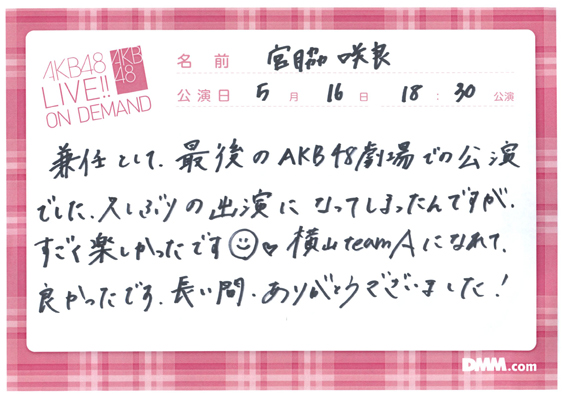 AKB48
LIVE!!
ON DEMAND
AKB
48
名前 宮脇咲良
公演日 5月16日 18:30 公演
兼任として、最後のAKB48劇場での公演
でした、久しぶりの出演になってしまったんですが、
すごく楽しかったです☺♥ 横山teamAになれて、
良かったです、長い間、ありがとうございました!
DMM.com